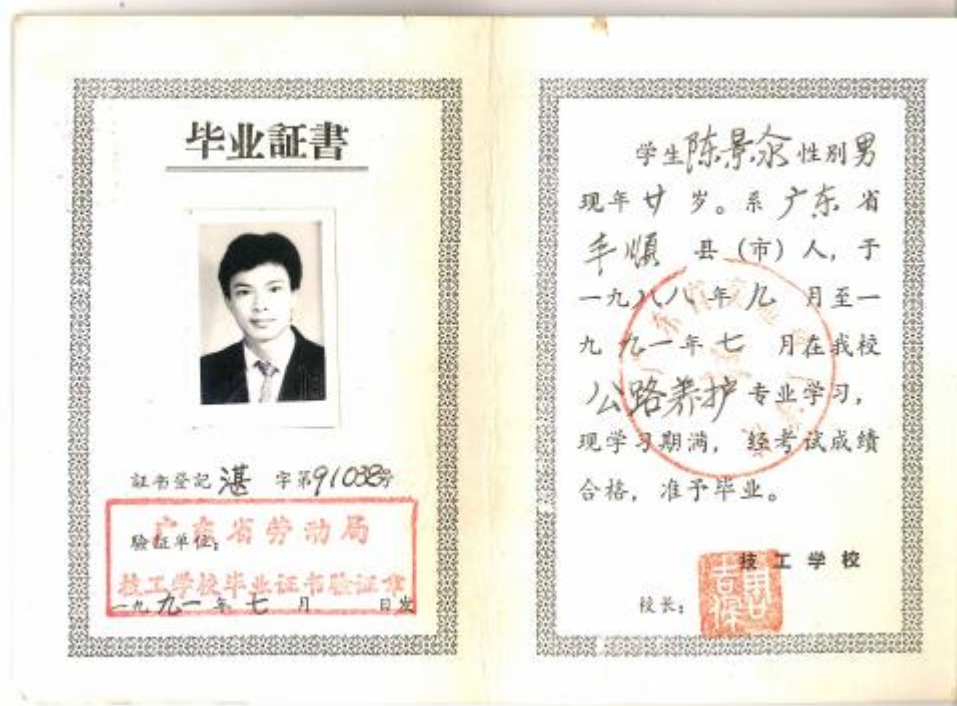 毕业証書
証书登記 湛 字第91038号
验証单位:
广东省劳动局
技工学校毕业证书验证章
一九九一年七月 日发
学生陈景 性别男
现年廿岁。系广东省
丰順 县(市)人,于
一九八八年九 月至一
九九一年七 月在我校
公路养护 专业学习,
现学习期满,经考试成绩
合格,准予毕业。
技工学校
校长: